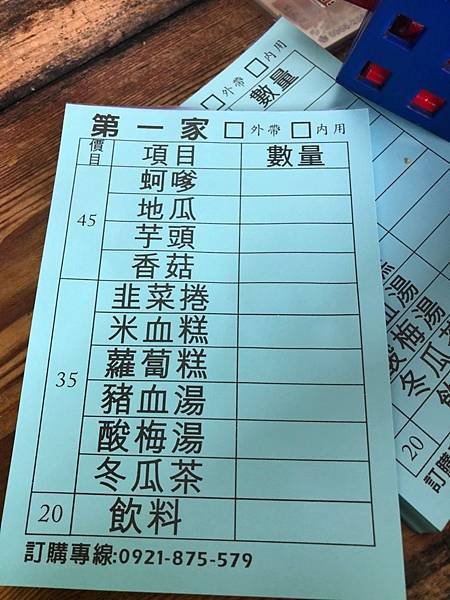 第一家 □外帶 □內用
價目 項目 數量
45 蚵嗲
地瓜
芋頭
香菇
35 韭菜捲
米血糕
蘿蔔糕
豬血湯
酸梅湯
冬瓜茶
20 飲料
訂購專線:0921-875-579
□外帶 □內用
數量
糕
血湯
酸梅湯
冬瓜茶
20 飲
訂購專線